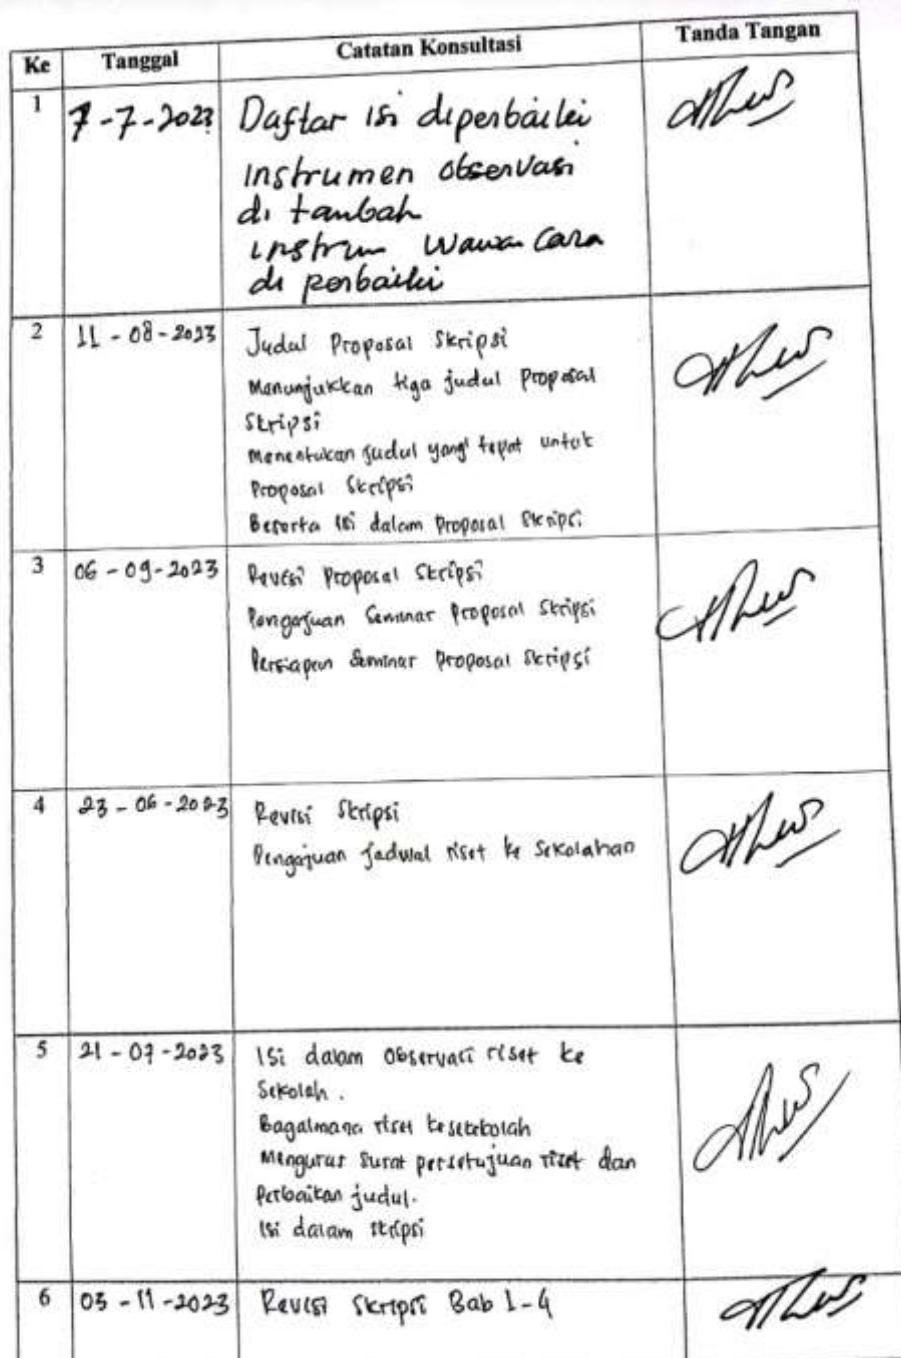 Ke Tanggal Catatan Konsultasi Tanda Tangan
1 7-7-2023 Daftar isi diperbaiki
instrumen observasi
di tambah
instrum wawancara
di perbaiki
2 11-08-2023 Judul Proposal Skripsi
Menunjukkan tiga judul Proposal
Skripsi
Menentukan judul yang tepat untuk
Proposal Skripsi
Beserta isi dalam Proposal Skripsi
3 06-09-2023 Revisi Proposal Skripsi
Pengajuan Seminar Proposal Skripsi
Persiapan Seminar Proposal Skripsi
4 23-06-2023 Revisi Skripsi
Pengajuan jadwal riset ke Sekolahan
5 21-07-2023 Isi dalam Observasi riset ke
Sekolah.
Bagaimana riset
Mengurus Surat persetujuan riset dan
Perbaikan judul.
Isi dalam skripsi
6 03-11-2023 Revisi Skripsi Bab 1-4